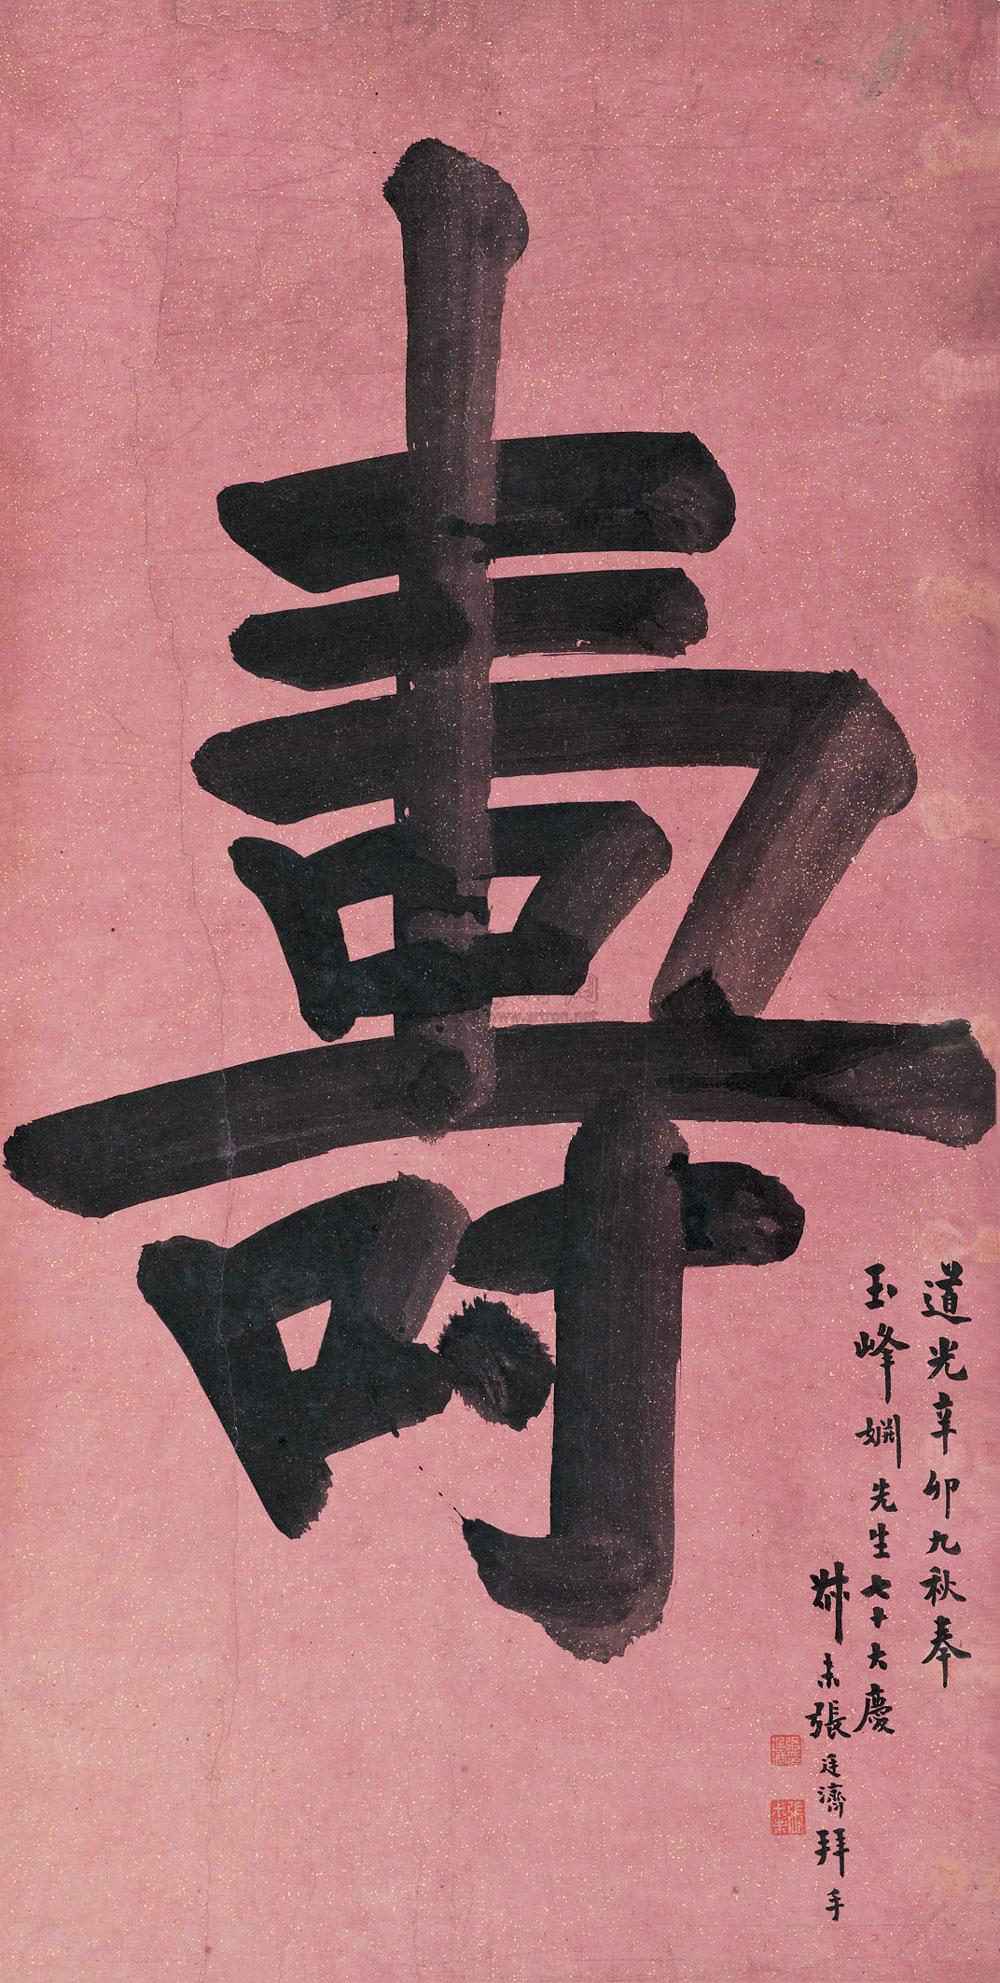 壽
道光辛卯九秋奉
玉峰姻先生七十大慶
叔未張廷濟拜手
www.artron.net